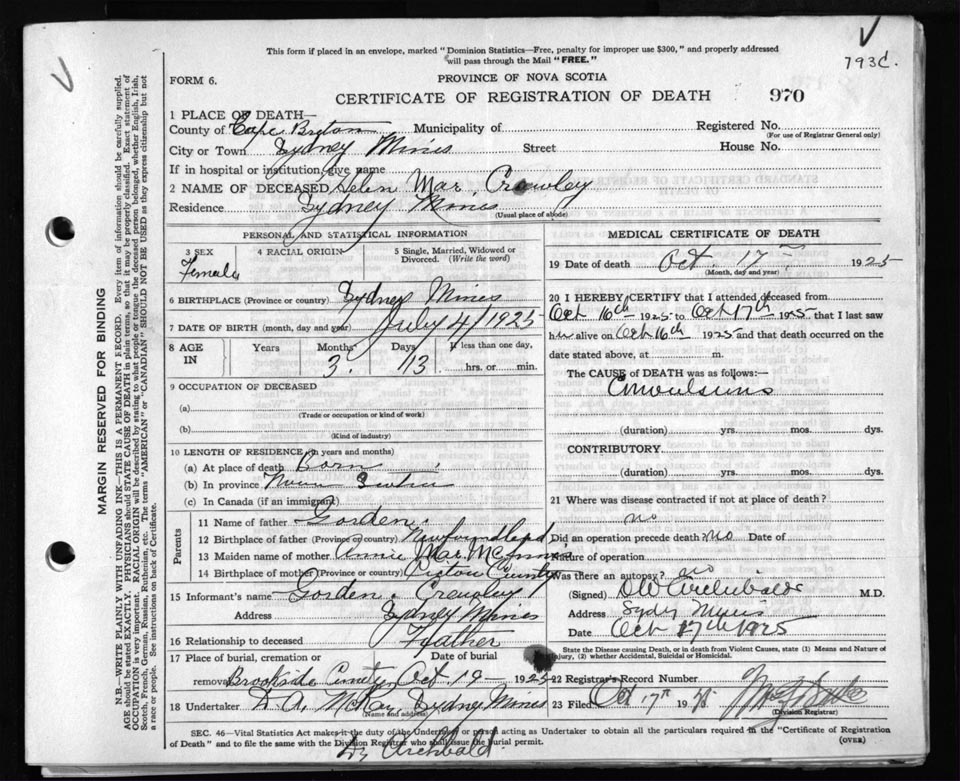 This form if placed in an envelope, marked "Dominion Statistics—Free, penalty for improper use $300," and properly addressed
will pass through the Mail "FREE."
793C.
FORM 6.
PROVINCE OF NOVA SCOTIA
CERTIFICATE OF REGISTRATION OF DEATH 970
1 PLACE OF DEATH—
County of Cape Breton Municipality of
Registered No.
(For use of Registrar General only)
City or Town Sydney Mines Street House No.
If in hospital or institution, give name
2 NAME OF DECEASED Helen Mae Crowley
Residence Sydney Mines
(Usual place of abode)
PERSONAL AND STATISTICAL INFORMATION
3 SEX 4 RACIAL ORIGIN 5 Single, Married, Widowed or Divorced. (Write the word)
Female
6 BIRTHPLACE (Province or country) Sydney Mines
7 DATE OF BIRTH (month, day and year) July 4/1925
8 AGE IN Years Months Days If less than one day,
3. 13 hrs. or min.
9 OCCUPATION OF DECEASED
(a)
(Trade or occupation or kind of work)
(b)
(Kind of industry)
10 LENGTH OF RESIDENCE (in years and months)
(a) At place of death Born
(b) In province Nova Scotia
(c) In Canada (if an immigrant)
Parents
11 Name of father Gorden
12 Birthplace of father (Province or country) Newfoundland
13 Maiden name of mother Annie Mae
14 Birthplace of mother (Province or country) Pictou County
15 Informant's name Gorden Crowley
Address Sydney Mines
16 Relationship to deceased Father
17 Place of burial, cremation or removal Date of burial
Brookside Cemetery Oct 19 1925
18 Undertaker D. A. McKay, Sydney Mines
(Name and address)
MEDICAL CERTIFICATE OF DEATH
19 Date of death Oct. 17 1925
(Month, day and year)
20 I HEREBY CERTIFY that I attended deceased from
Oct 16th 1925 to Oct 17th 1925 that I last saw
her alive on Oct 16th 1925 and that death occurred on the
date stated above, at m.
The CAUSE of DEATH was as follows:—
Convulsions
(duration) yrs. mos. dys.
CONTRIBUTORY.
(duration) yrs. mos. dys.
21 Where was disease contracted if not at place of death?
no
Did an operation precede death? no Date of
Nature of operation
Was there an autopsy? no
(Signed) Archibald M.D.
Address Sydy Mines
Date Oct 17th 1925
State the Disease causing Death, or in death from Violent Causes, state (1) Means and Nature of
Injury, (2) whether Accidental, Suicidal or Homicidal.
22 Registrar's Record Number
23 Filed Oct 17th
(Division Registrar)
SEC. 46—Vital Statistics Act makes it the duty of the Undertaker or person acting as Undertaker to obtain all the particulars required in the "Certificate of Registration
of Death" and to file the same with the Division Registrar who shall issue the burial permit. (OVER)
Dr Archbald
MARGIN RESERVED FOR BINDING
N.B.—WRITE PLAINLY WITH UNFADING INK—THIS IS A PERMANENT RECORD. Every item of information should be carefully supplied.
AGE should be stated EXACTLY. PHYSICIANS should STATE CAUSE OF DEATH in plain terms, so that it may be properly classified. Exact statement of
OCCUPATION is very important. RACIAL ORIGIN will be described by stating to what people or tongue the deceased person belonged, whether English, Irish,
Scotch, French, German, Russian, Ruthenian, etc. The terms "AMERICAN" or "CANADIAN" SHOULD NOT BE USED as they express citizenship but not
a race or people. See instructions on back of Certificate.